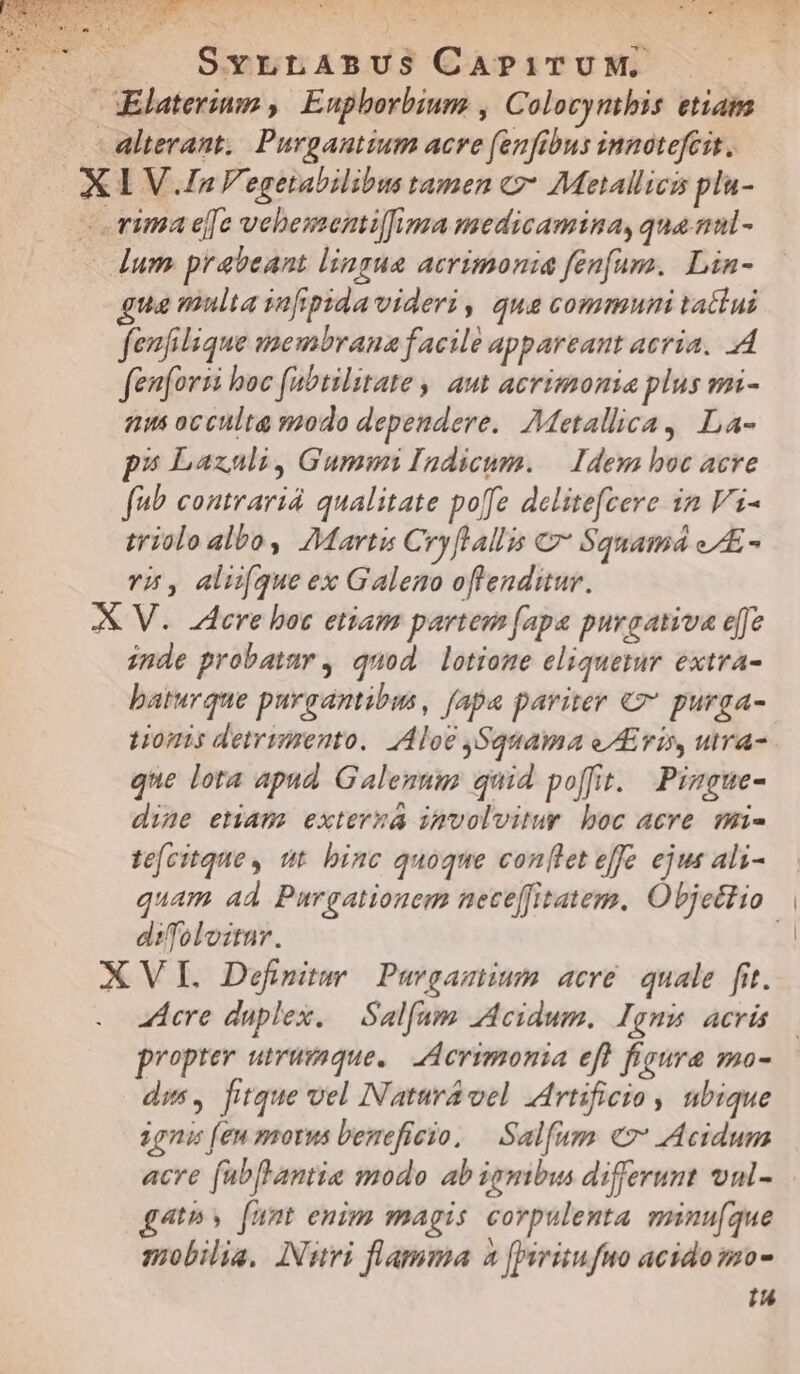 SYLLABUS CAPITUM.
Elaterium, Euphorbium, Colocynthis etiam
alterant. Purgantium acre ſenſibus innoteſcit.
XIV. In Vegetabilibus tamen & Metallicis plu-
rima eſſe vehementiſſima medicamina, quæ nul-
lum præbeant linguæ acrimoniæ ſenſum. Lin-
guæ multa inſipida videri, quæ communi tactui
ſenſilique membranæ facilè appareant acria. A
ſenſorii hoc ſubtilitate, aut acrimonia plus mi-
nus occulta modo dependere. Metallica, La-
pis Lazuli, Gummi Indicum. Idem hoc acre
ſub contrariâ qualitate poſſe deliteſcere in Vi-
triolo albo, Martis Cryſtallis & Squamâ Æ-
ris, aliiſque ex Galeno oſtenditur.
XV. Acre hoc etiam partem ſapæ purgativæ eſſe
inde probatur, quod lotione eliquetur extra-
haturque purgantibus, ſapæ pariter & purga-
tionis detrimento. Aloë, Squama Æris, utra-
que lota apud Galenum quid poſſit. Pingue-
dine etiam externâ involvitur hoc acre mi-
teſcitque, ut hinc quoque conſtet eſſe ejus ali-
quam ad Purgationem neceſſitatem. Objectio
diſſolvitur.
XVI. Definitur Purgantium acre quale ſit.
Acre duplex. Salſum Acidum. Ignis acris
propter utrumque. Acrimonia eſt figuræ mo-
dus, fitque vel Naturâ vel Artificio, ubique
ignis ſeu motus beneficio. Salſum & Acidum
acre ſubſtantiæ modo ab ignibus differunt vul-
gatis, ſunt enim magis corpulenta minuſque
mobilia. Nitri flamma à ſpiritu ſuo acido mo-
tu